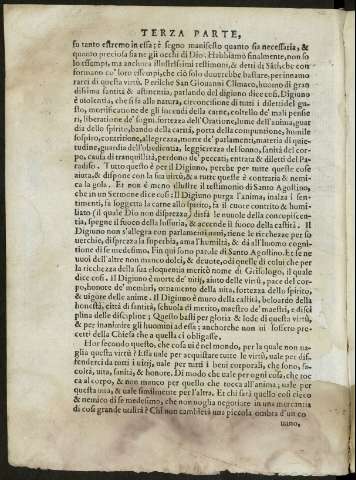 TERZA PARTE,
fu tanto estremo in essa; è segno manifesto quanto sia necessaria, &
quanto preciosa sia ne gli occhi di Dio. Habbiamo finalmente, non solo
lo essempi, ma anchora illustrissimi testimoni, & detti di Säti, che con
formano co' loro essempi, che ciò solo douerebbe bastare, per innamo
rarci di questa virtù. Perilche San Giouanni Climaco, huomo di gran
dissima santità & astinentia, parlando del digiuno dice cosi. Digiuno
è violentia, che si fa alla natura, circoncisione di tutti i diletti del gu-
sto, mortificatione de gli incendi della carne, coltello de' mali pensie
ri, liberatione de' sogni, fortezza dell'Oratione, lume dell'anima, guar
dia dello spirito, bando della carna, porta della compuntione, humile
sospiro, contritione, allegrezza, morte de' parlamenti, materia di quie-
tudine, guardia dell'obedientia, leggierezza del sonno, sanità del cor-
po, causa di tranquillità, perdono de' peccati, entrata & diletti del Pa-
radiso. Tutto questo è per il Digiuno, perche per tutte queste cose
aiuta, & dispone con la sua virtù, & a tutte queste è contraria & nemi-
ca la gola. Et non è meno illustre il testimonio di Santo Agostino,
che in un Sermone dice cosi: Il Digiuno purga l'anima, inalza i sen-
timenti, fa soggetta la carne allo spirito, fa il cuore contrito & humi-
liato (il quale Dio non disprezza) disfà le nuuole della concupiscen-
tia, spegne il fuoco della lussuria, & accende il fuoco della castità. Il
Digiuno non s'allegra con parlamenti uani, tiene le ricchezze per so
uerchie, disprezza la superbia, ama l'humiltà, & dà all'huomo cogni-
tione di se medesimo. Fin qui sono parole di Santo Agostino. Et se ne
vuoi dell'altre non manco dolci, & deuote, odi quelle di colui che per
la ricchezza della sua eloquentia meritò nome di Grisologo, il quale
dice cosi. Il Digiuno è morte de' vitij, aiuto delle virtù, pace del cor-
po, honore de' membri, ornamento della uita, fortezza dello spirito,
& uigore delle anime. Il Digiuno è muro della castità, beloardo della
honestà, città di santità, scuola di merito, maestro de' maestri, & disci
plina delle discipline; Questo basti per gloria & lode di questa virtù,
& per inanimire gli huomini ad essa; anchorche non ui fossero pre-
cetti della Chiesa che a questa ci obligasse.
Hor secondo questo, che cosa ui è nel mondo, per la quale non ua-
glia questa virtù? Essa uale per acquistare tutte le virtù, uale per dif-
fenderci da tutti i vitij, uale per tutti i beni corporali, che sono, fa-
coltà, uita, sanità, & honore. Di modo che uale per ogni cosa, che toc
ca al corpo, & non manco per quello che tocca all'anima; uale per
questa uita, & uale similmente per l'altra. Et chi sarà quello cosi cieco
& nemico di se medesimo, che non uoglia negotiare in una mercantia
di cosi grande utilità? Chi non cambierà una piccola ombra d'un co
uano,